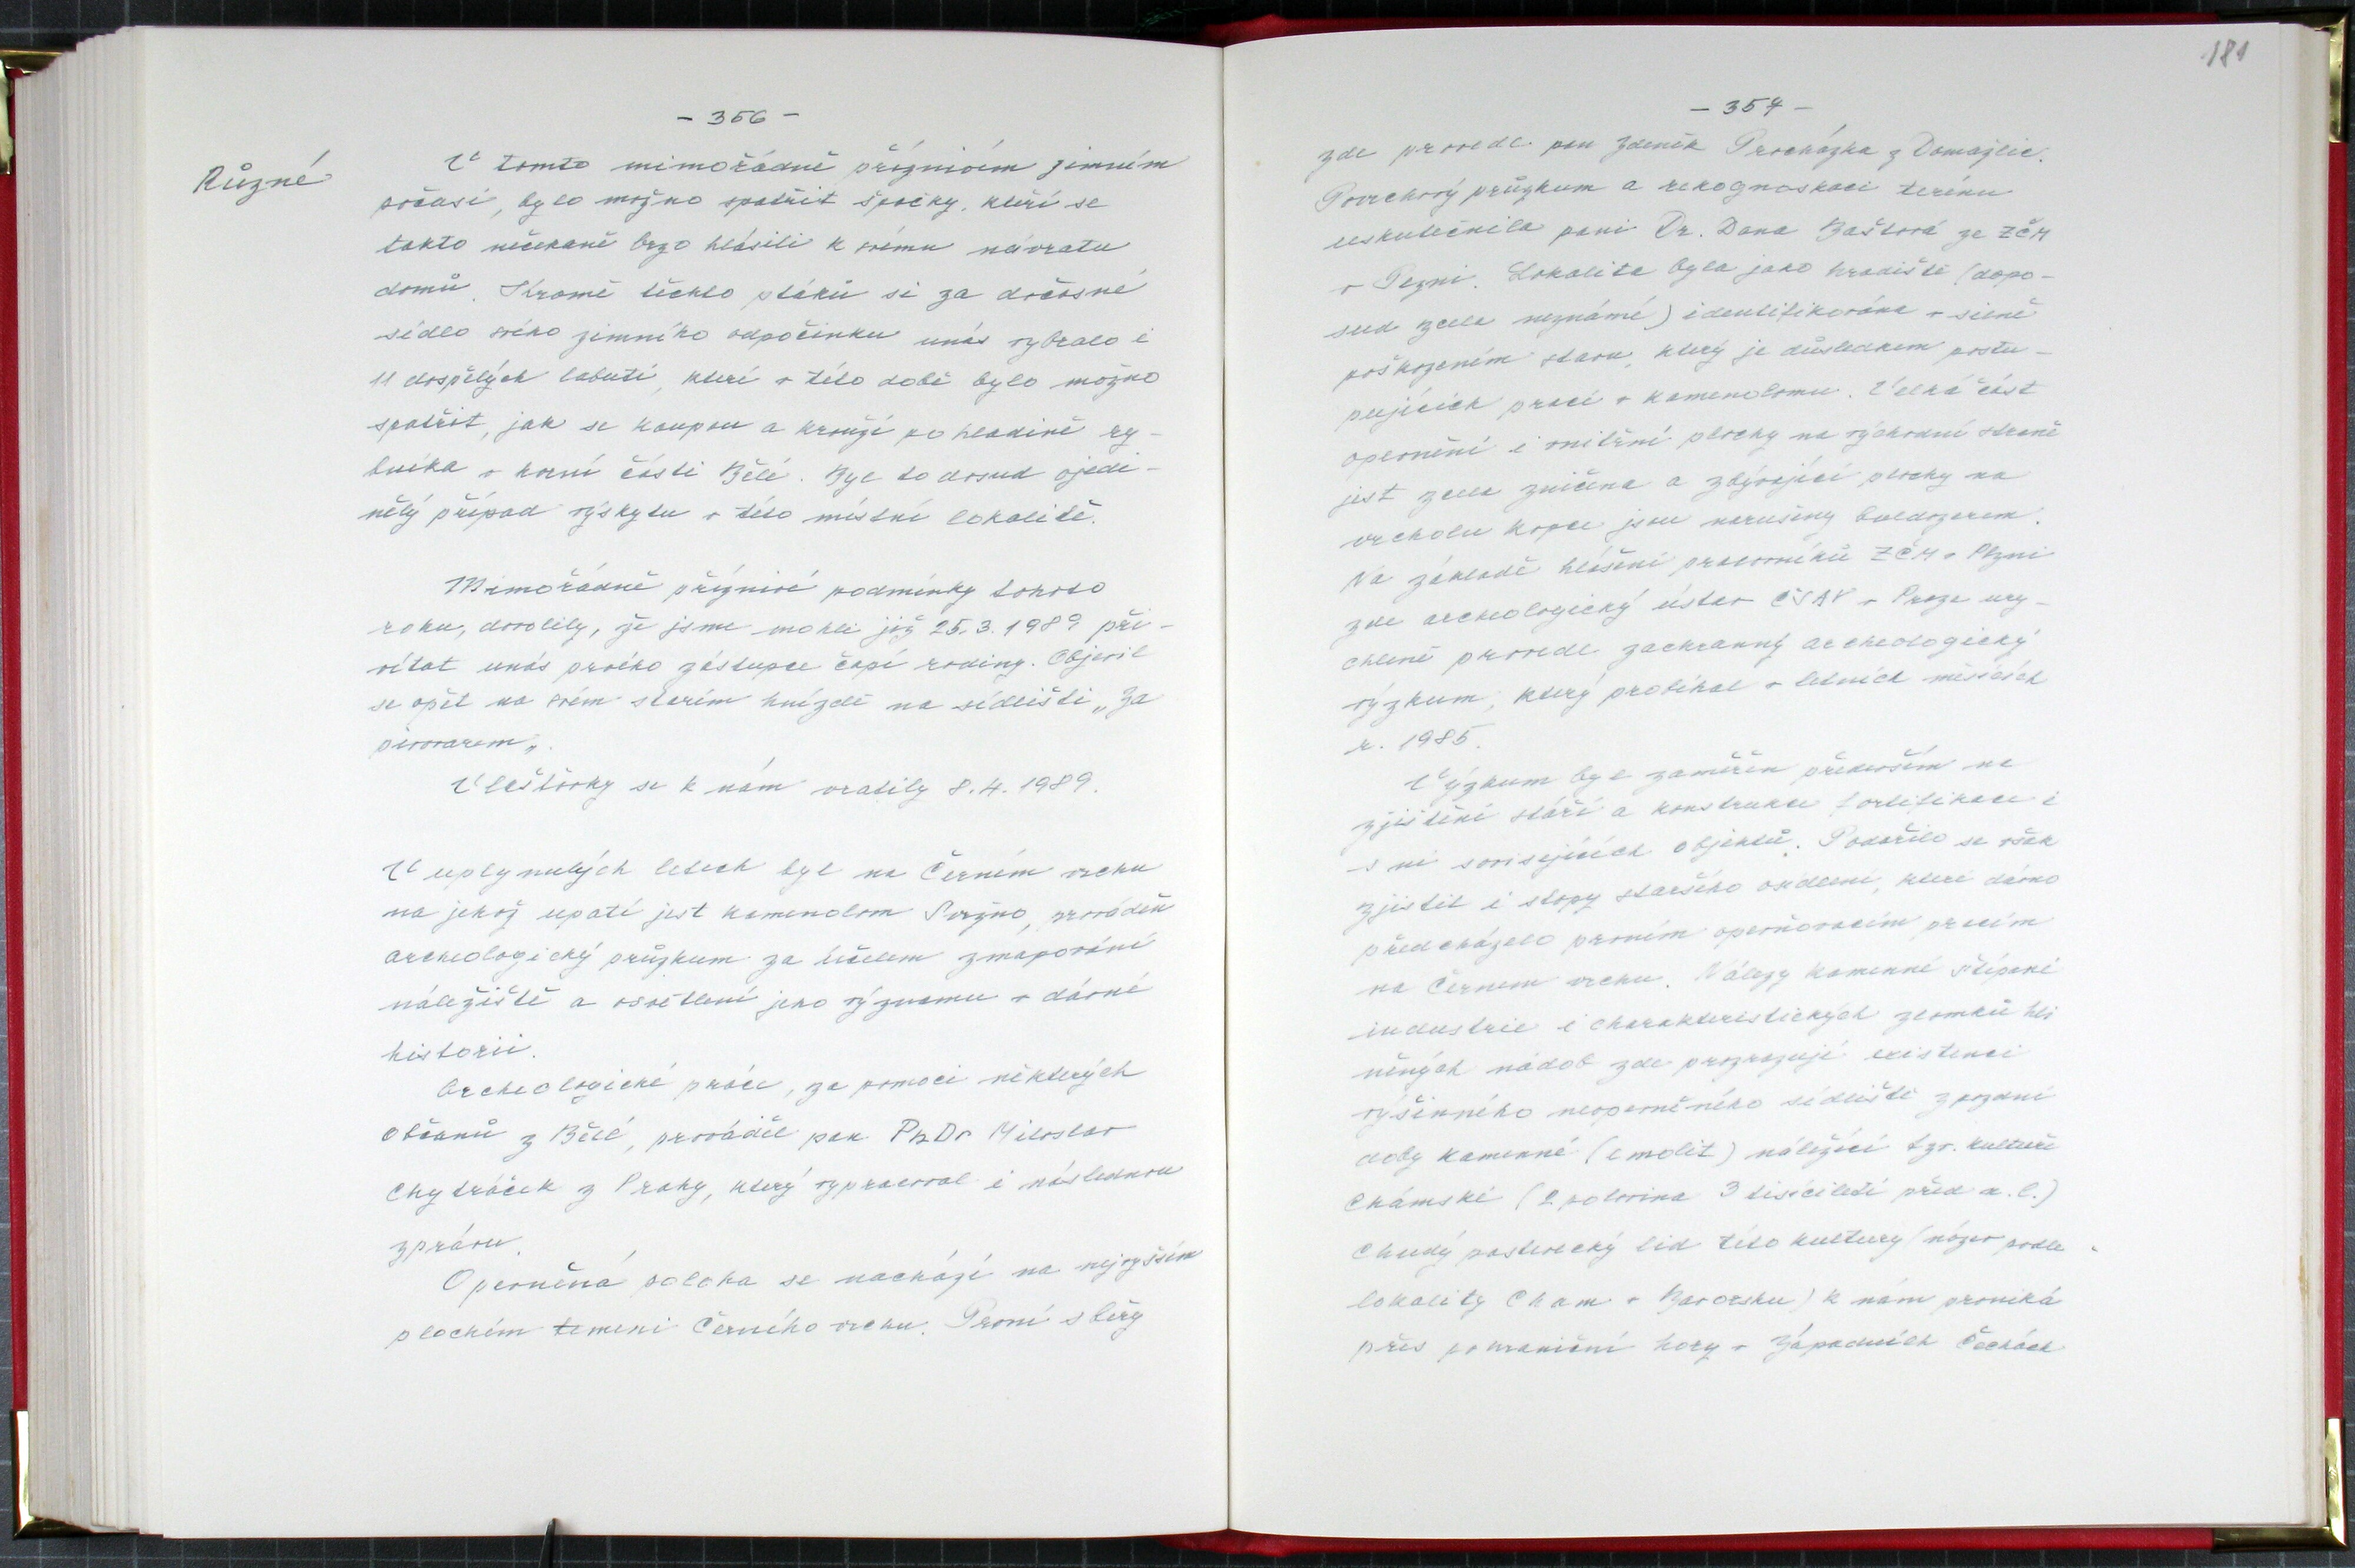 - 356 -
Různé
V tomto mimořádně příznivém zimním
počasí, bylo možno spatřit špačky, kteří se
takto nečekaně brzo hlásili k svému návratu
domů. Kromě těchto ptáků si za dočasné
sídlo svého zimního odpočinku unás vybralo i
11 dospělých labutí, které v této době bylo možno
spatřit, jak se koupou a krouží po hladině ry-
bníka v horní části Bělé. Byl to dosud ojedi-
nělý případ výskytu v této místní lokalitě.
Mimořádně příznivé podmínky tohoto
roku, dovolily, že jsme mohli již 25.3.1989 při-
vítat unás prvého zástupce čapí rodiny. Objevil
se opět na svém starém hnízdě na sídlišti „Za
pivovarem„.
Vlaštovky se k nám vratily 8.4.1989.
V uplynulých letech byl na Černém vrchu
na jehož upatí jest kamenolom Svržno, prováděn
archeologický průzkum za účelem zmapování
náležiště a osvětlení jeho významu v dávné
historii.
Archeologické práce, za pomoci některých
občanů z Bělé, prováděl pan PhDr Miloslav
Chytráček z Prahy, který vypracoval i náslědnou
zprávu.
Opevněná poloha se nachází na nejvyšším
plochém temeni Černého vrchu. První sběry
181
- 357 -
zde provedl pan Zdeněk Procházka z Domažlic.
Povrchový průzkum a rekognoskaci terénu
uskutečnila paní Dr. Dana Baštová ze ZČM
v Plzni. Lokalita byla jako hradiště (dopo-
sud zcela neznámé) identifikována v silně
poškozeném stavu, který je důsledkem postu-
pujících prací v kamenolomu. Velká část
opevnění i vnitřní plochy na východní straně
jest zcela zničena a zbývající plochy na
vrcholu kopce jsou narušeny buldozerem.
Na základě hlášení pracovníků ZČM v Plzni
zde archeologický ústav ČSAV v Praze ury-
chleně provedl zachranný archeologický
výzkum, který probíhal v letních měsících
r. 1985.
Výzkum byl zaměřen především na
zjištění stáří a konstrukce fortifikace i
s ní souvisejících objektů. Podařilo se však
zjistit i stopy staršího osídlení, které dávno
předcházelo prvním opevňovacím pracím
na Černem vrchu. Nálezy kamenné štípané
industrie i charakteristických zlomků hli
něných nádob zde prozrazují existenci
výšinného neopevněného sídliště z pozdní
doby kamenné (emolit) náležící tzv. kultuře
Chámské (2 polovina 3 tisíciletí před n.l.)
Chudý pastevecký lid této kultury (název podle
lokality Cham v Bavorsku) k nám proniká
přes pohraniční hory v Západních Čechách